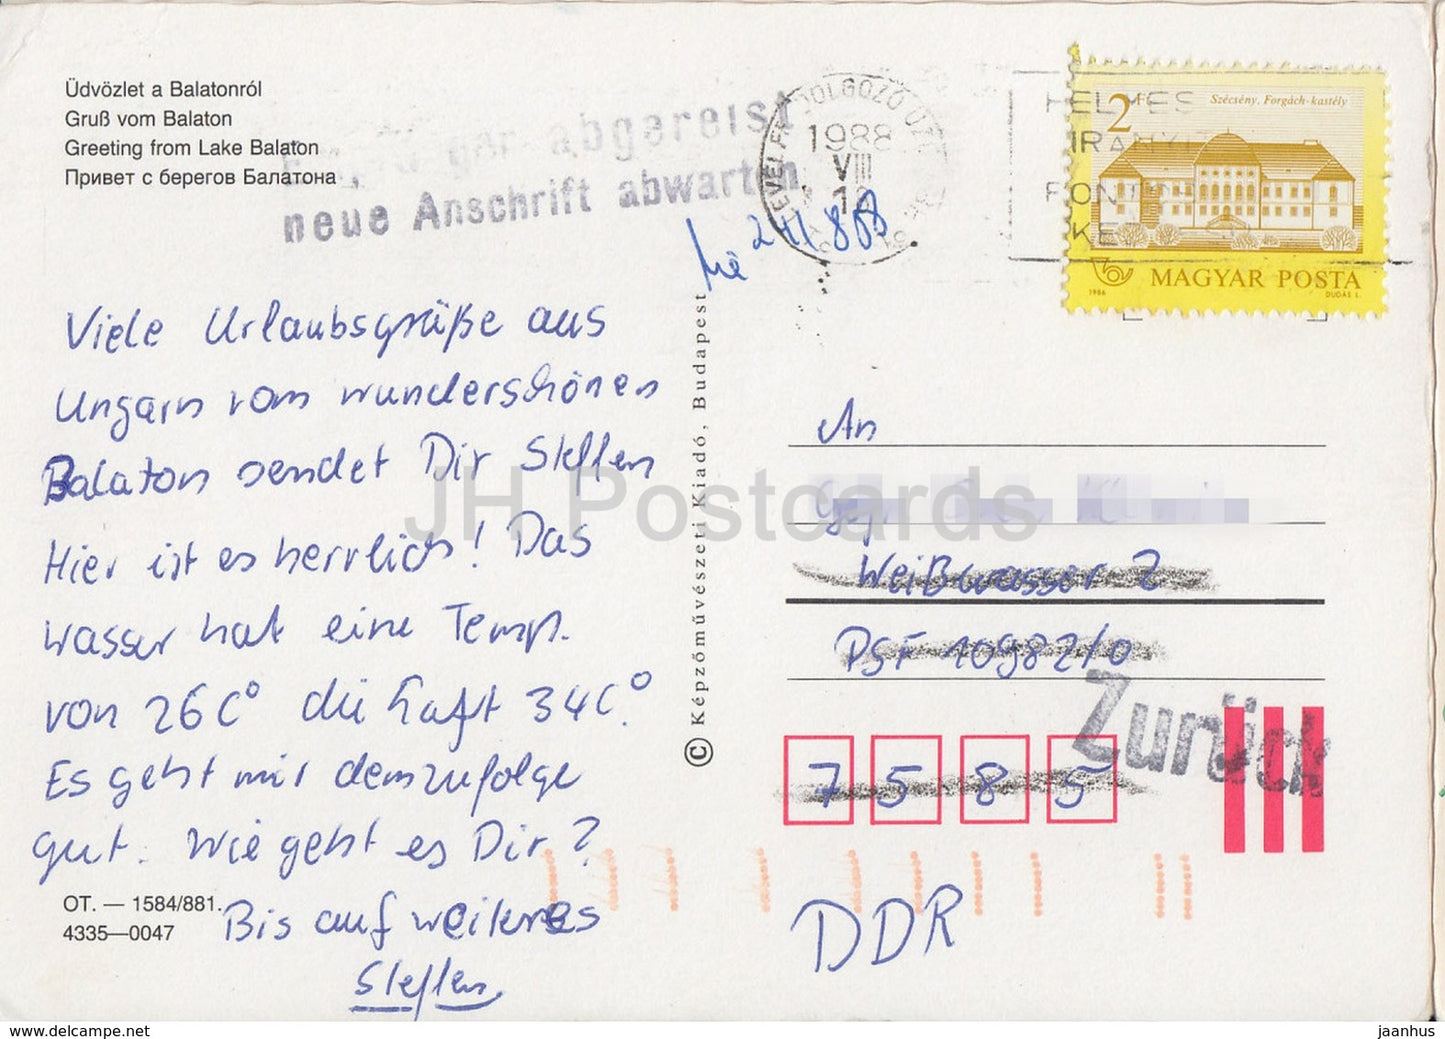 Üdvözlet a Balatonról
Gruß vom Balaton
Greeting from Lake Balaton
Привет с берегов Балатона
abgereist
neue Anschrift abwarten
1988
VIII
2 Ft
Szécsény, Forgách-kastély
1986
MAGYAR POSTA
DUDÁS L.
Viele Urlaubsgrüße aus
Ungarn vom wunderschönen
Balaton sendet Dir Steffen
Hier ist es herrlich! Das
Wasser hat eine Temp.
von 26 C° die Luft 34 C°.
Es geht mir demzufolge
gut. Wie geht es Dir?
Bis auf weiteres
Steffen
OT. — 1584/881.
4335—0047
© Képzőművészeti Kiadó, Budapest
An
Weißwasser 2
PSF 10982/0
Zurück
7 5 8 5
DDR
JH Postcards
www.delcampe.net
jaanhus